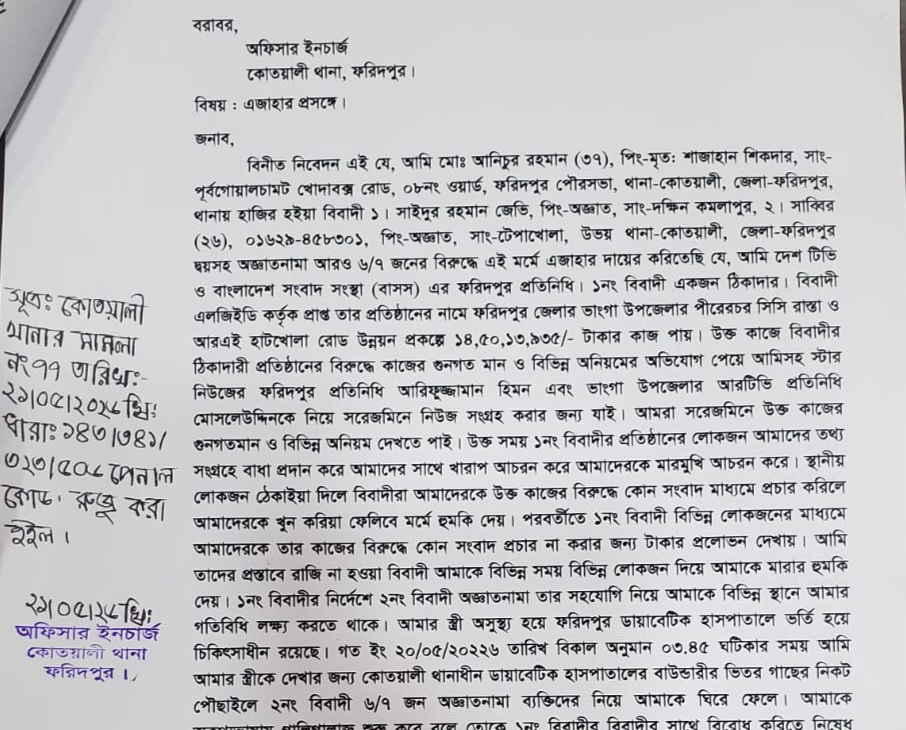 বরাবর,
অফিসার ইনচার্জ
কোতয়ালী থানা, ফরিদপুর।
বিষয় : এজাহার প্রসঙ্গে।
জনাব,
বিনীত নিবেদন এই যে, আমি মোঃ আনিচুর রহমান (৩৭), পিং-মৃতঃ শাজাহান শিকদার, সাং-
পূর্বগোয়ালচামট খোদাবক্স রোড, ০৮নং ওয়ার্ড, ফরিদপুর পৌরসভা, থানা-কোতয়ালী, জেলা-ফরিদপুর,
থানায় হাজির হইয়া বিবাদী ১। সাইদুর রহমান জেভি, পিং-অজ্ঞাত, সাং-দক্ষিন কমলাপুর, ২। সাব্বির
(২৬), ০১৬২৯-৪৫৮৩০১, পিং-অজ্ঞাত, সাং-টেপাখোলা, উভয় থানা-কোতয়ালী, জেলা-ফরিদপুর
দ্বয়সহ অজ্ঞাতনামা আরও ৬/৭ জনের বিরুদ্ধে এই মর্মে এজাহার দায়ের করিতেছি যে, আমি দেশ টিভি
ও বাংলাদেশ সংবাদ সংস্থা (বাসস) এর ফরিদপুর প্রতিনিধি। ১নং বিবাদী একজন ঠিকাদার। বিবাদী
এলজিইডি কর্তৃক প্রাপ্ত তার প্রতিষ্ঠানের নামে ফরিদপুর জেলার ভাংগা উপজেলার পীরেরচর সিসি রাস্তা ও
আরএই হাটখোলা রোড উন্নয়ন প্রকল্পে ১৪,৫০,১৩,৯৩৫/- টাকার কাজ পায়। উক্ত কাজে বিবাদীর
ঠিকাদারী প্রতিষ্ঠানের বিরুদ্ধে কাজের গুনগত মান ও বিভিন্ন অনিয়মের অভিযোগ পেয়ে আমিসহ স্টার
নিউজের ফরিদপুর প্রতিনিধি আরিফুজ্জামান হিমন এবং ভাংগা উপজেলার আরটিভি প্রতিনিধি
মোসলেউদ্দিনকে নিয়ে সরেজমিনে নিউজ সংগ্রহ করার জন্য যাই। আমরা সরেজমিনে উক্ত কাজের
গুনগতমান ও বিভিন্ন অনিয়ম দেখতে পাই। উক্ত সময় ১নং বিবাদীর প্রতিষ্ঠানের লোকজন আমাদের তথ্য
সংগ্রহে বাধা প্রদান করে আমাদের সাথে খারাপ আচরন করে আমাদেরকে মারমুখি আচরন করে। স্থানীয়
লোকজন ঠেকাইয়া দিলে বিবাদীরা আমাদেরকে উক্ত কাজের বিরুদ্ধে কোন সংবাদ মাধ্যমে প্রচার করিলে
আমাদেরকে খুন করিয়া ফেলিবে মর্মে হুমকি দেয়। পরবর্তীতে ১নং বিবাদী বিভিন্ন লোকজনের মাধ্যমে
আমাদেরকে তার কাজের বিরুদ্ধে কোন সংবাদ প্রচার না করার জন্য টাকার প্রলোভন দেখায়। আমি
তাদের প্রস্তাবে রাজি না হওয়া বিবাদী আমাকে বিভিন্ন সময় বিভিন্ন লোকজন দিয়ে আমাকে মারার হুমকি
দেয়। ১নং বিবাদীর নির্দেশে ২নং বিবাদী অজ্ঞাতনামা তার সহযোগি নিয়ে আমাকে বিভিন্ন স্থানে আমার
গতিবিধি লক্ষ্য করতে থাকে। আমার স্ত্রী অসুস্থ্য হয়ে ফরিদপুর ডায়াবেটিক হাসপাতালে ভর্তি হয়ে
চিকিৎসাধীন রয়েছে। গত ইং ২০/০৫/২০২২৬ তারিখ বিকাল অনুমান ০৩.৪৫ ঘটিকার সময় আমি
আমার স্ত্রীকে দেখার জন্য কোতয়ালী থানাধীন ডায়াবেটিক হাসপাতালের বাউন্ডারীর ভিতর গাছের নিকট
পৌছাইলে ২নং বিবাদী ৬/৭ জন অজ্ঞাতনামা ব্যক্তিদের নিয়ে আমাকে ঘিরে ফেলে। আমাকে
১নং বিবাদীর বিবাদীর সাথে বিরোধ করিতে নিষেধ
সূত্রঃ কোতয়ালী
থানার মামলা
নং ৭৭ তারিখঃ-
২১/০৫/২০২৬খ্রিঃ
ধারাঃ ১৪৩/৩৪১/
৩২৩/৫০৬ পেনাল
কোড। রুজু করা
হইল।
২১/০৫/২৬খ্রিঃ
অফিসার ইনচার্জ
কোতয়ালী থানা
ফরিদপুর।